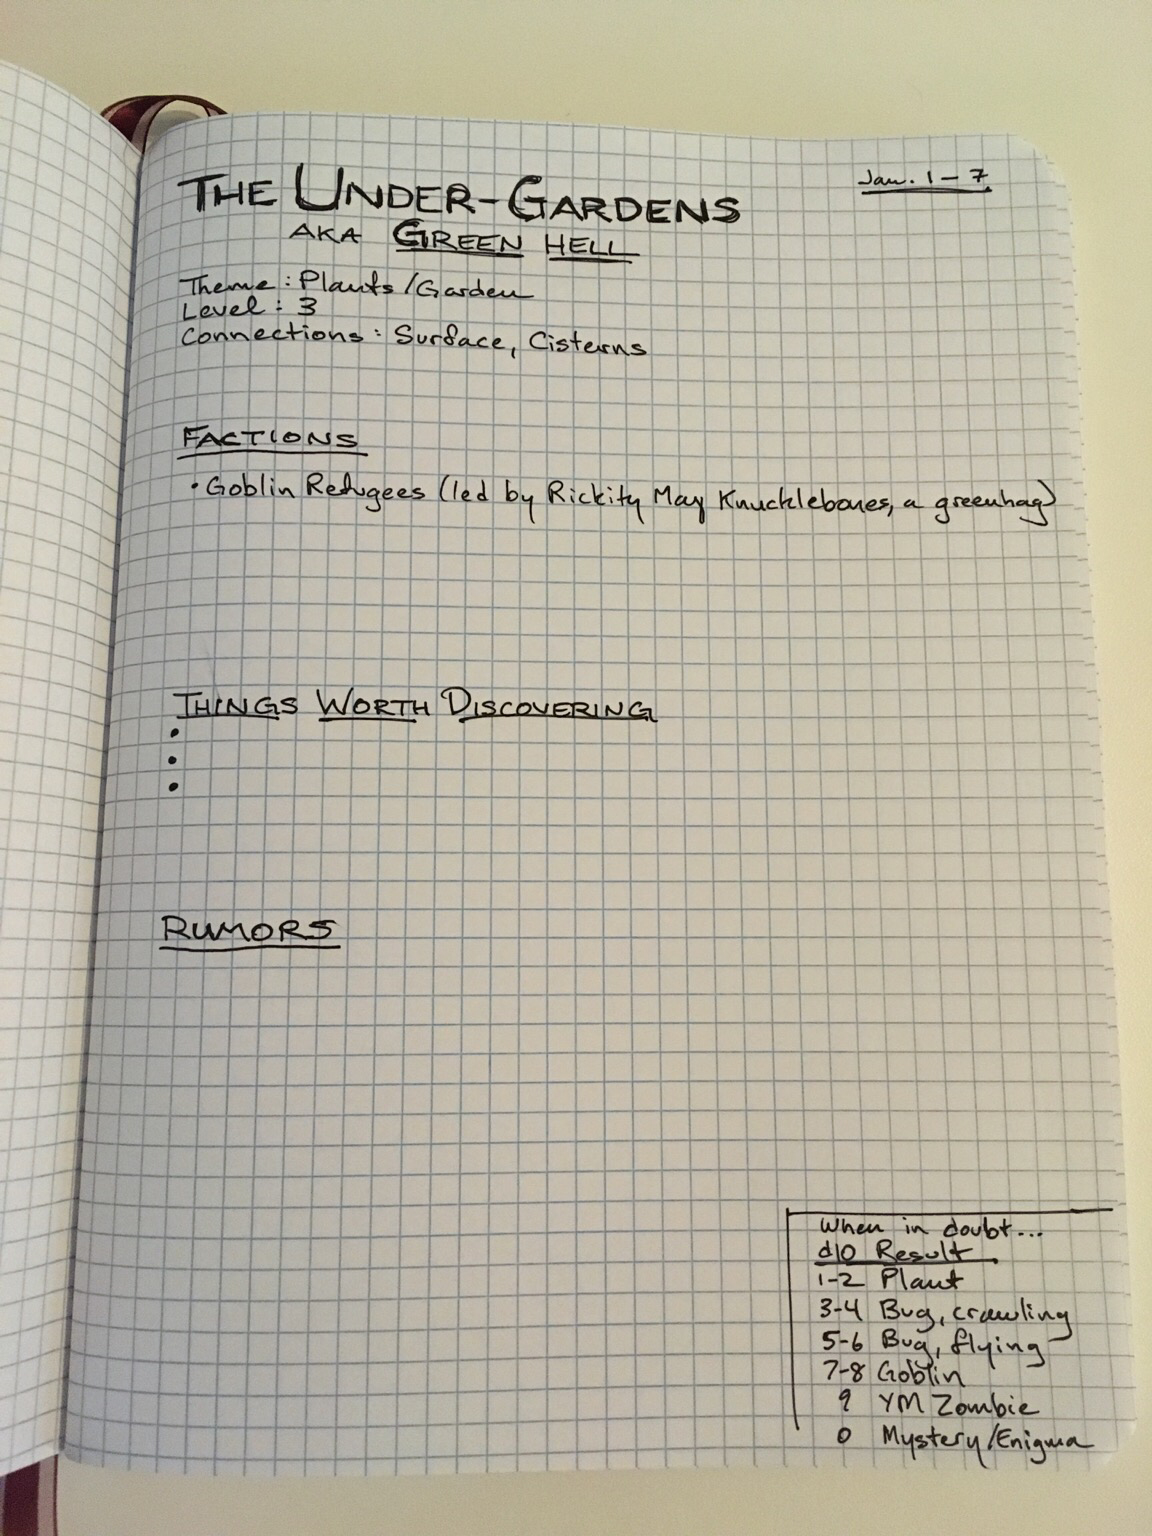 THE UNDER-GARDENS
Jan. 1-7
AKA GREEN HELL
Theme: Plants/Garden
Level: 3
Connections: Surface, Cisterns
FACTIONS
• Goblin Refugees (led by Rickity May Knucklebones, a greenhag)
THINGS WORTH DISCOVERING
•
•
•
RUMORS
When in doubt...
d10 Result
1-2 Plant
3-4 Bug, crawling
5-6 Bug, flying
7-8 Goblin
9 YM Zombie
0 Mystery/Enigma